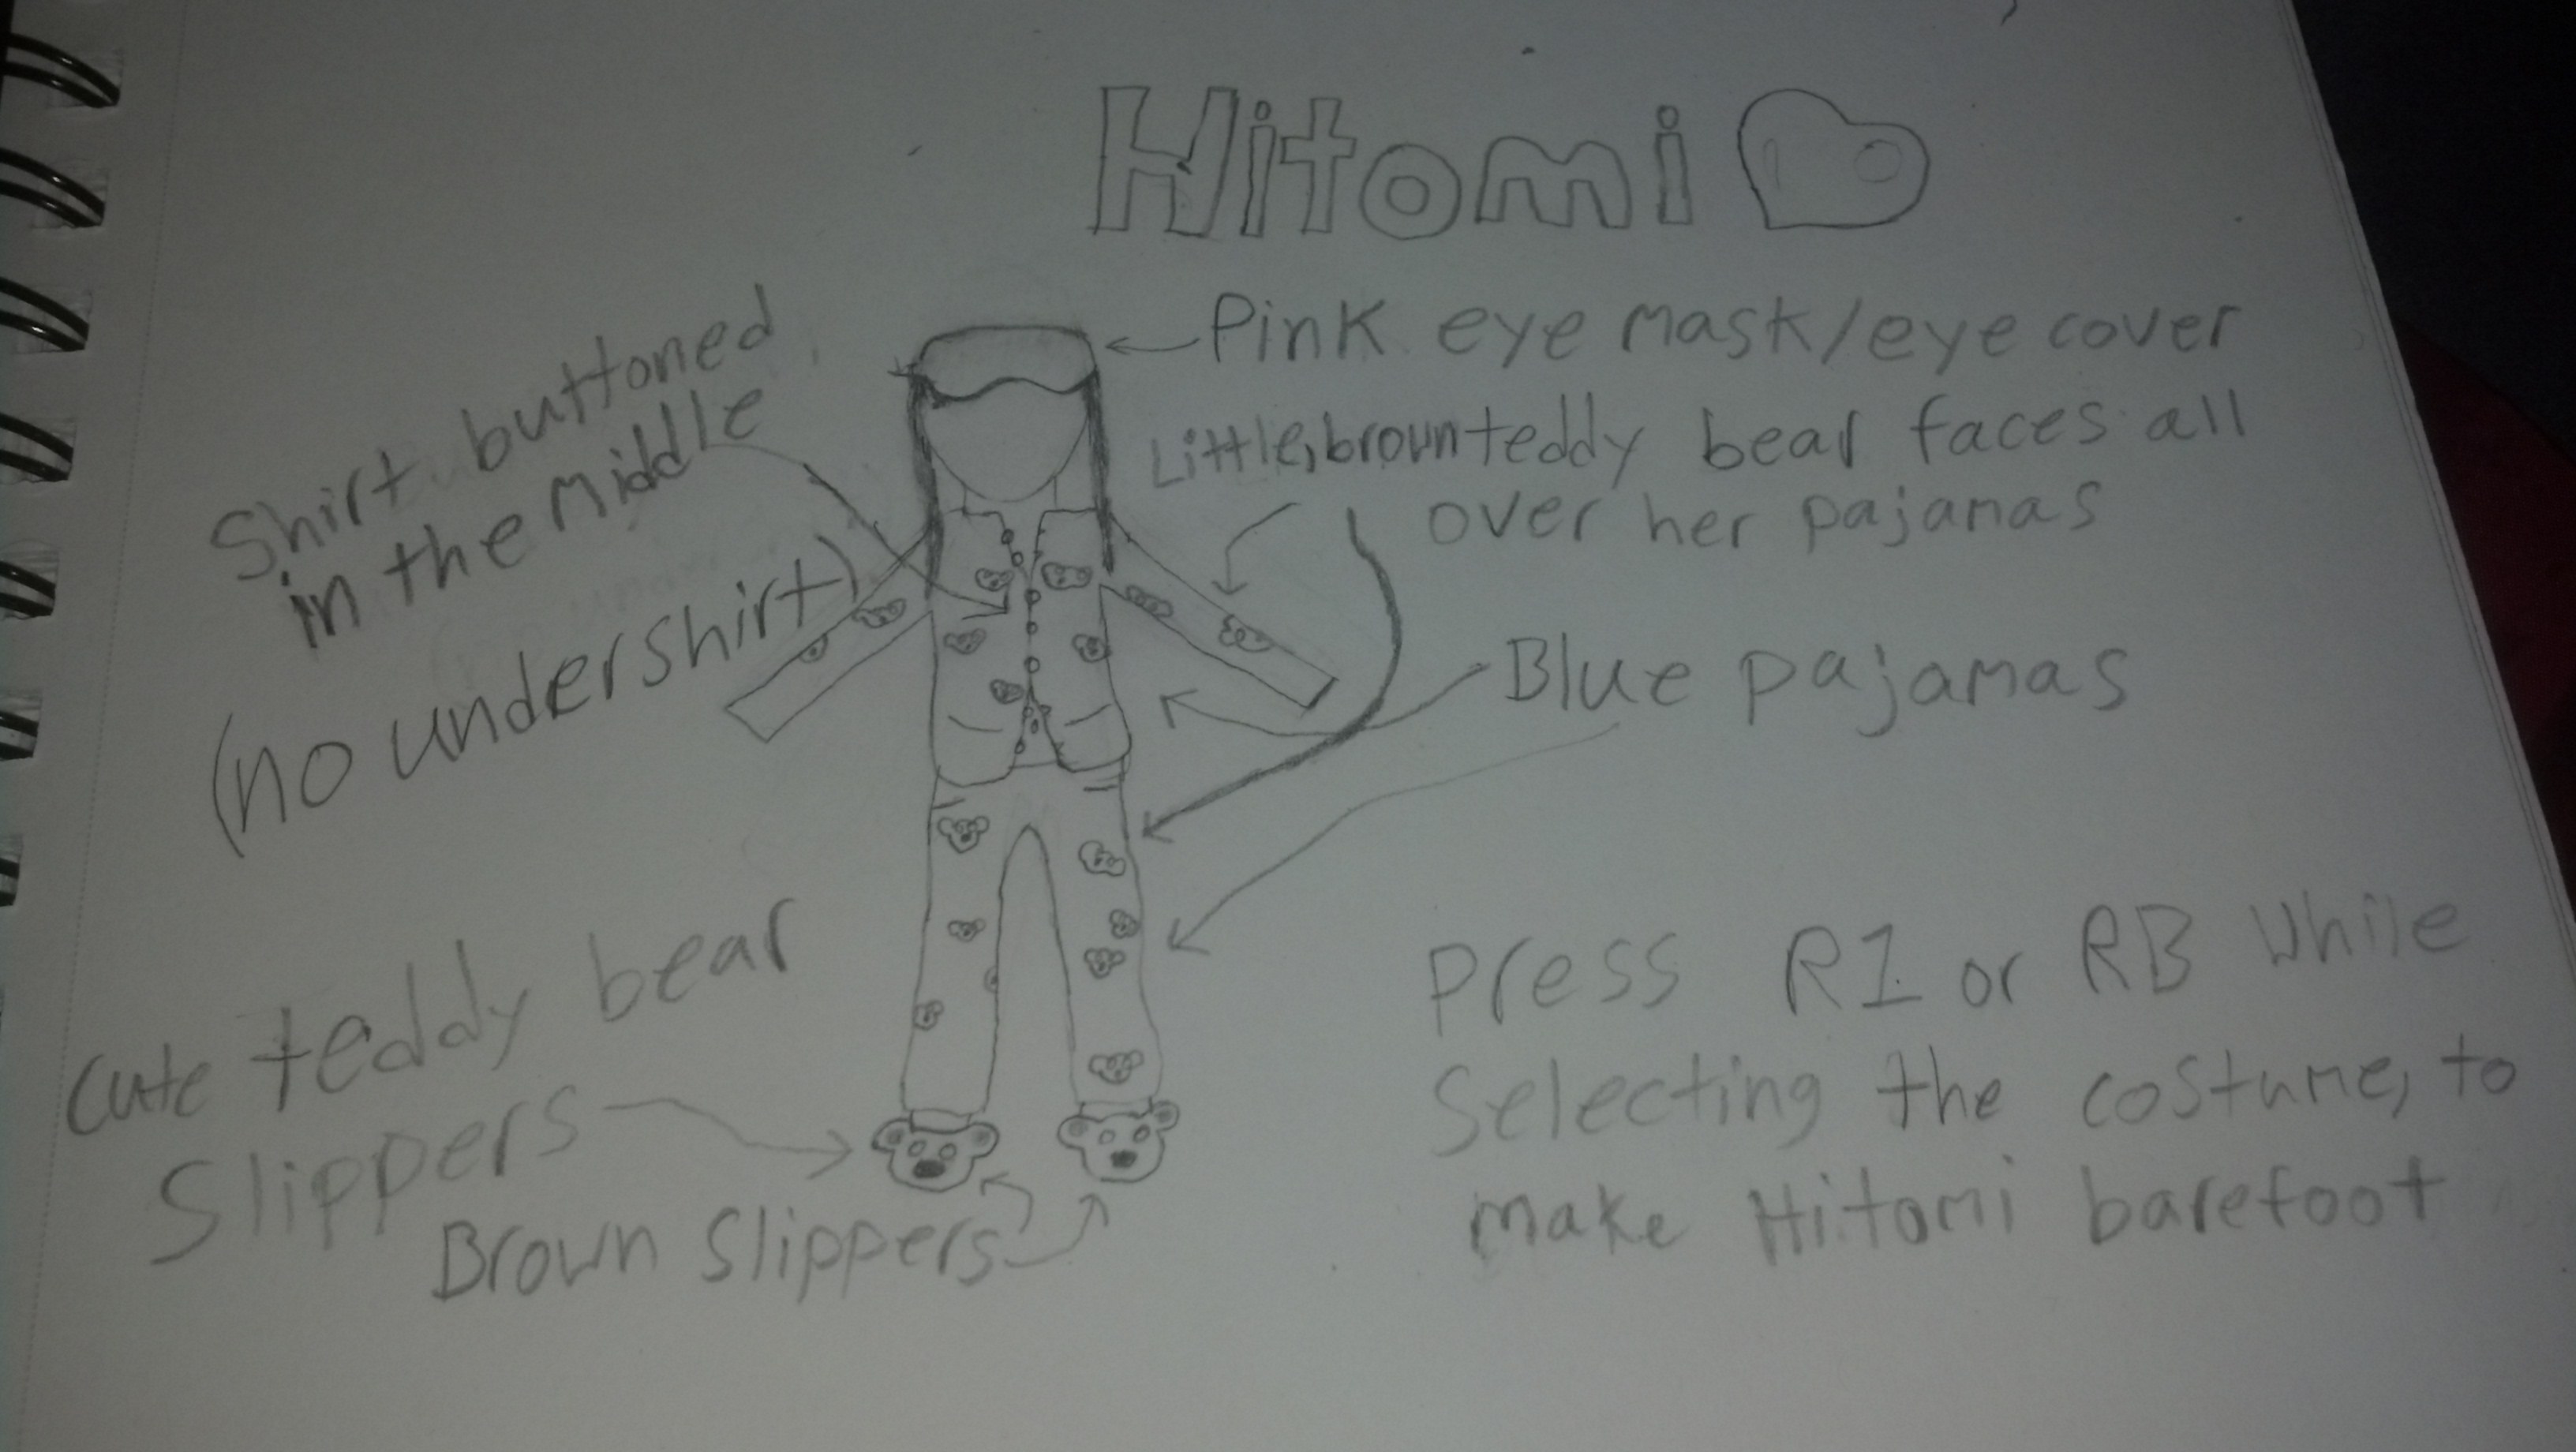 Hitomi
Pink eye mask/eye cover
Little, brown teddy bear faces all
over her pajamas
Blue pajamas
Shirt buttoned
in the middle
(no undershirt)
Cute teddy bear
Slippers
Brown Slippers
Press R1 or RB while
Selecting the costume, to
make Hitomi barefoot